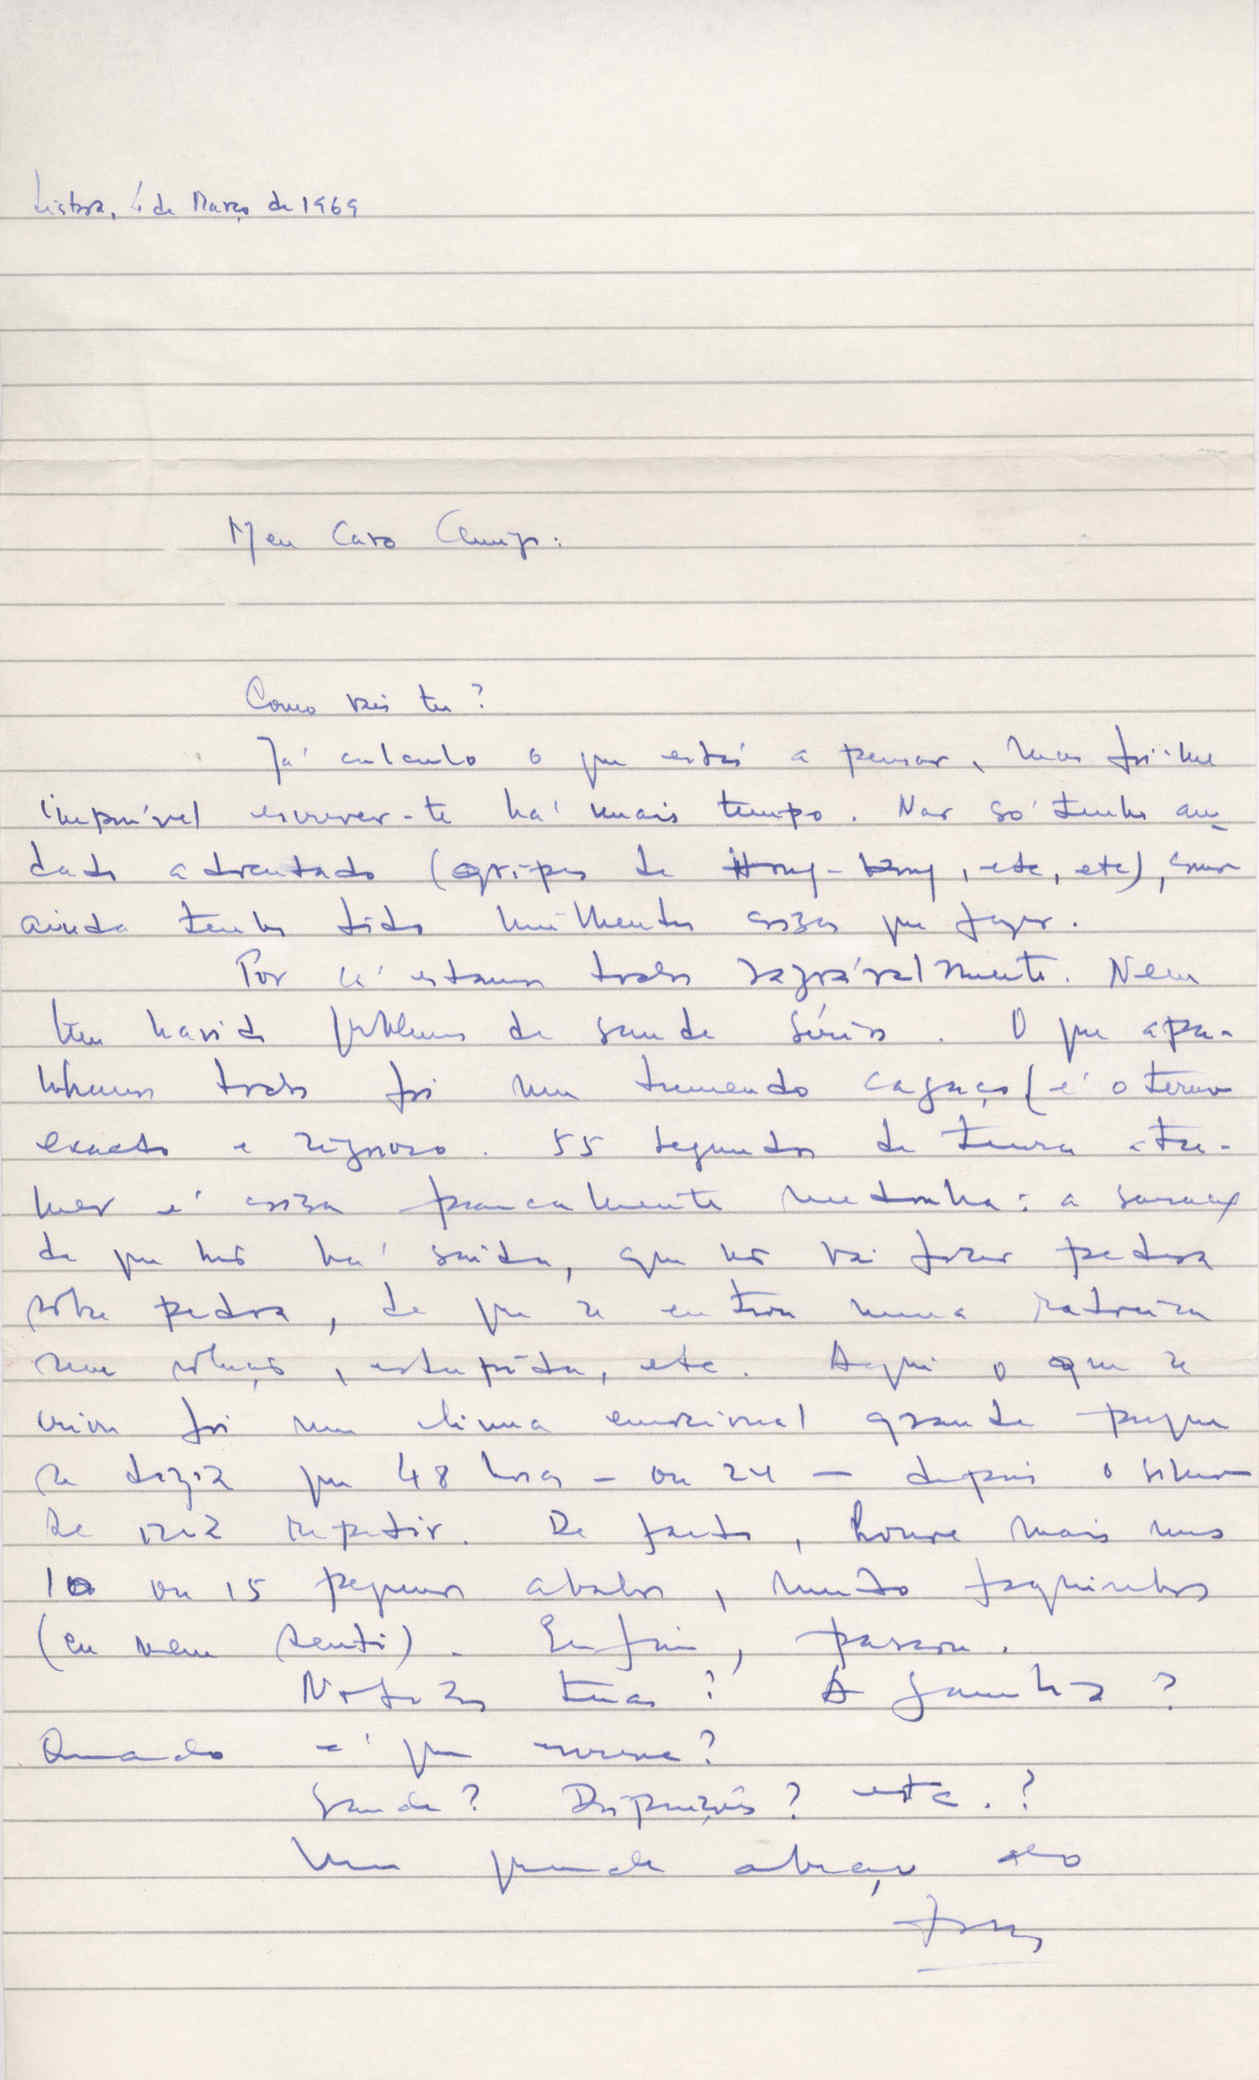 Lisboa, 4 de Março de 1969
Meu Caro
Como vais tu?
Já calculo o que estás a pensar, mas foi-me
impossível escrever-te há mais tempo. Não só tenho an-
dado adoentado (gripes de Hong-Kong, etc, etc), como
ainda tenho tido milhentas coisas que fazer.
Por cá estamos todos razoàvelmente. Nem
tem havido problemas de saude sérios. O que apa-
nhamos todos foi um tremendo cagaço (é o termo
exacto e rigoroso. 55 segundos de terra a tre-
mer é coisa francamente medonha: a sensação
de que não há saída, que não vai ficar pedra
sobre pedra, de que se entrou numa ratoeira
sem solução, estúpida, etc. Aqui o que se
criou foi um clima emocional grande porque
se dizia que 48 horas - ou 24 - depois o sismo
se iria repetir. De facto, houve mais uns
10 ou 15 pequenos abalos, muito fraquinhos
(eu nem senti). Enfim, passou.
Notícias tuas? A Gandra?
Quando é que
Saude? Disposição? etc.?
Um grande abraço do